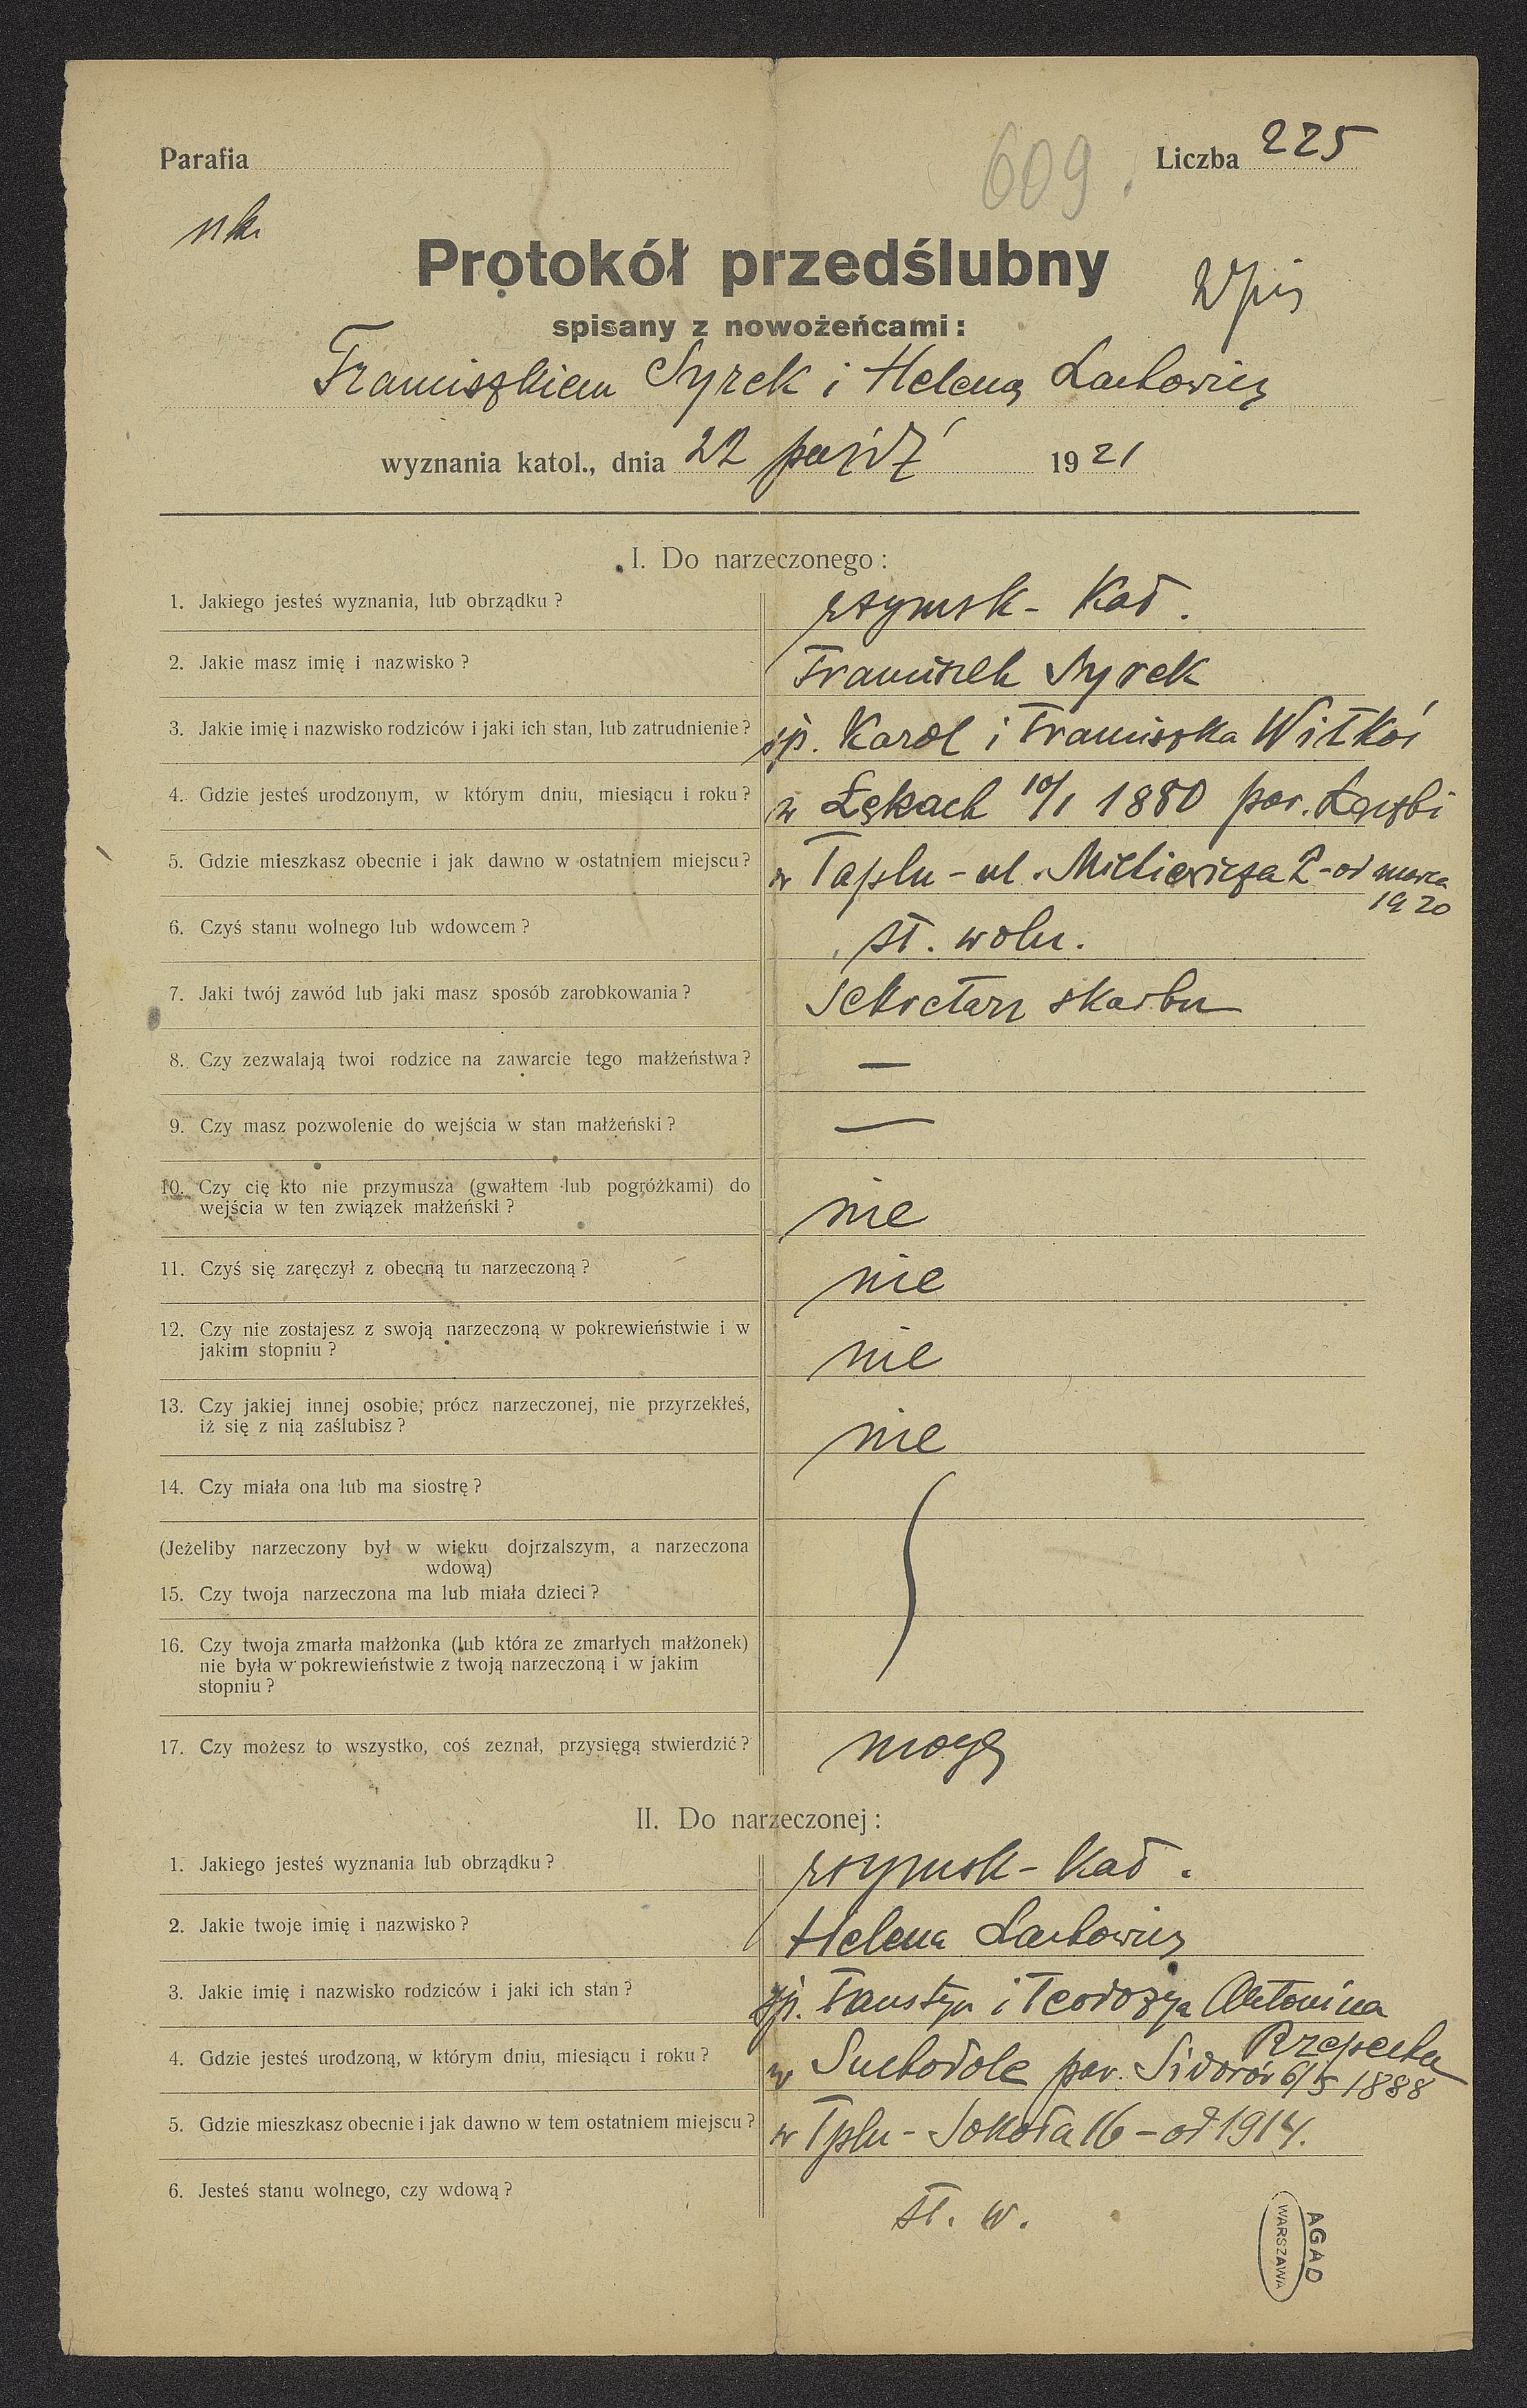 Parafia
609.
Liczba 225
Protokół przedślubny
Wpis
spisany z nowożeńcami:
Franciszkiem Syrek i Heleną Lachowicz
wyznania katol., dnia 22 paźdź 1921
I. Do narzeczonego:
1. Jakiego jesteś wyznania, lub obrządku? rzymsk-Kat.
2. Jakie masz imię i nazwisko? Franciszek Syrek
3. Jakie imię i nazwisko rodziców i jaki ich stan, lub zatrudnienie? śp. Karol i Franciszka Witkoś
4. Gdzie jesteś urodzonym, w którym dniu, miesiącu i roku? w Łękach 10/1 1880 par.
5. Gdzie mieszkasz obecnie i jak dawno w ostatniem miejscu? w Taplu - ul. Mickiewicza 2 - od marca
1920
6. Czyś stanu wolnego lub wdowcem? st. woln.
7. Jaki twój zawód lub jaki masz sposób zarobkowania? Sekretarz skarbu
8. Czy zezwalają twoi rodzice na zawarcie tego małżeństwa? —
9. Czy masz pozwolenie do wejścia w stan małżeński? —
10. Czy cię kto nie przymusza (gwałtem lub pogróżkami) do
wejścia w ten związek małżeński? nie
11. Czyś się zaręczył z obecną tu narzeczoną? nie
12. Czy nie zostajesz z swoją narzeczoną w pokrewieństwie i w
jakim stopniu? nie
13. Czy jakiej innej osobie, prócz narzeczonej, nie przyrzekłeś,
iż się z nią zaślubisz? nie
14. Czy miała ona lub ma siostrę?
(Jeżeliby narzeczony był w wieku dojrzalszym, a narzeczona
wdową)
15. Czy twoja narzeczona ma lub miała dzieci?
16. Czy twoja zmarła małżonka (lub która ze zmarłych małżonek)
nie była w pokrewieństwie z twoją narzeczoną i w jakim
stopniu?
17. Czy możesz to wszystko, coś zeznał, przysięgą stwierdzić? mogę
II. Do narzeczonej:
1. Jakiego jesteś wyznania lub obrządku? rzymsk-Kat.
2. Jakie twoje imię i nazwisko? Helena Lachowicz
3. Jakie imię i nazwisko rodziców i jaki ich stan? śp. Faustyn i Teodozya Antonina
Rzepecka
4. Gdzie jesteś urodzoną, w którym dniu, miesiącu i roku? w Suchodole par. Sidorów 6/5 1888
5. Gdzie mieszkasz obecnie i jak dawno w tem ostatniem miejscu? w Tplu - Sokoła 16 - od 1914.
6. Jesteś stanu wolnego, czy wdową? st. w.
AGAD
WARSZAWA